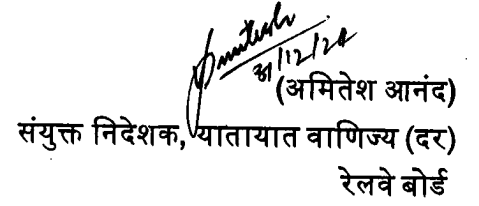 Amitesh
31/12/24
(अमितेश आनंद)
संयुक्त निदेशक, यातायात वाणिज्य (दर)
रेलवे बोर्ड